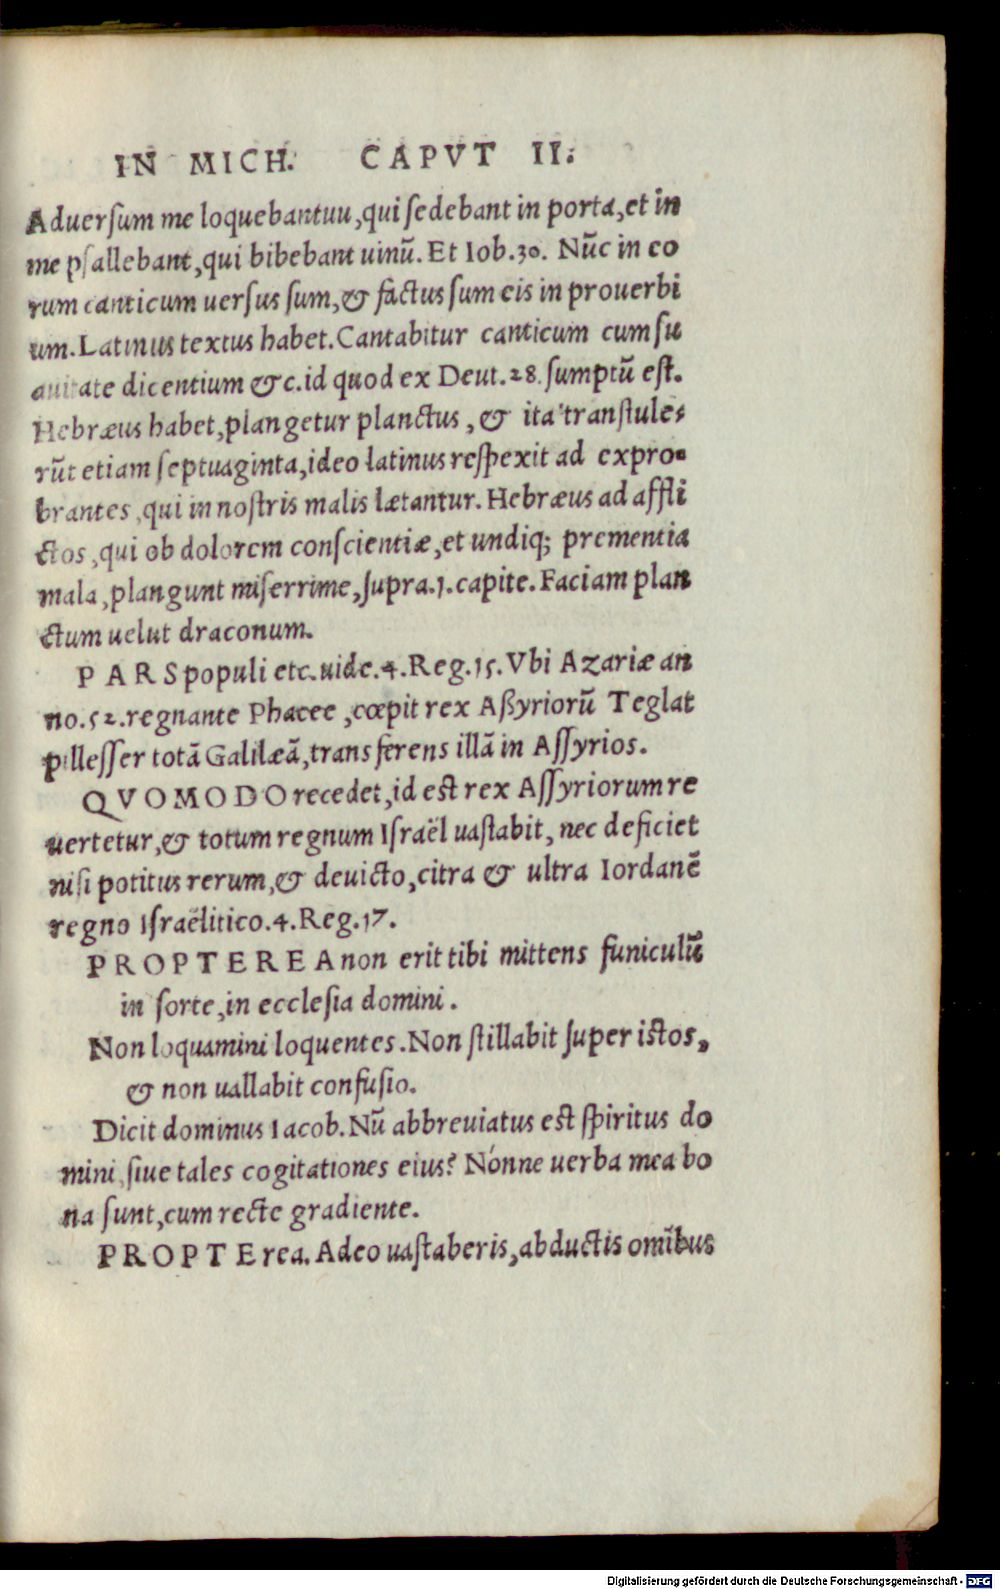 IN MICH. CAPVT II.
Aduerſum me loquebantuu, qui ſedebant in porta, et in
me pſallebant, qui bibebant uinū. Et Iob.30. Nūc in eo
rum canticum uerſus ſum, & factus ſum eis in prouerbi
um. Latinus textus habet. Cantabitur canticum cum ſu
auitate dicentium &c. id quod ex Deut.28. ſumptū eſt.
Hebræus habet, plangetur planctus, & ita tranſtule-
rūt etiam ſeptuaginta, ideo latinus reſpexit ad expro-
brantes, qui in noſtris malis lætantur. Hebræus ad affli
ctos, qui ob dolorem conſcientiæ, et undiq; prementia
mala, plangunt miſerrime, ſupra.1.capite. Faciam plan
ctum uelut draconum.
PARS populi etc. uide.4.Reg.15. Vbi Azariæ an
no.52. regnante Phacee, cœpit rex Aßyriorū Teglat
pilleſſer totā Galilæā, transferens illā in Aſſyrios.
QVOMODO recedet, id est rex Aſſyriorum re
uertetur, & totum regnum Iſraël uaſtabit, nec deficiet
niſi potitus rerum, & deuicto, citra & ultra Iordanē
regno Iſraëlitico.4.Reg.17.
PROPTEREA non erit tibi mittens funiculū
in ſorte, in eccleſia domini.
Non loquamini loquentes. Non ſtillabit ſuper iſtos,
& non uallabit confuſio.
Dicit dominus Iacob. Nū abbreuiatus est ſpiritus do
mini, ſiue tales cogitationes eius? Nónne uerba mea bo
na ſunt, cum recte gradiente.
PROPTErea. Adeo uaſtaberis, abductis omībus
Digitalisierung gefördert durch die Deutsche Forschungsgemeinschaft - DFG